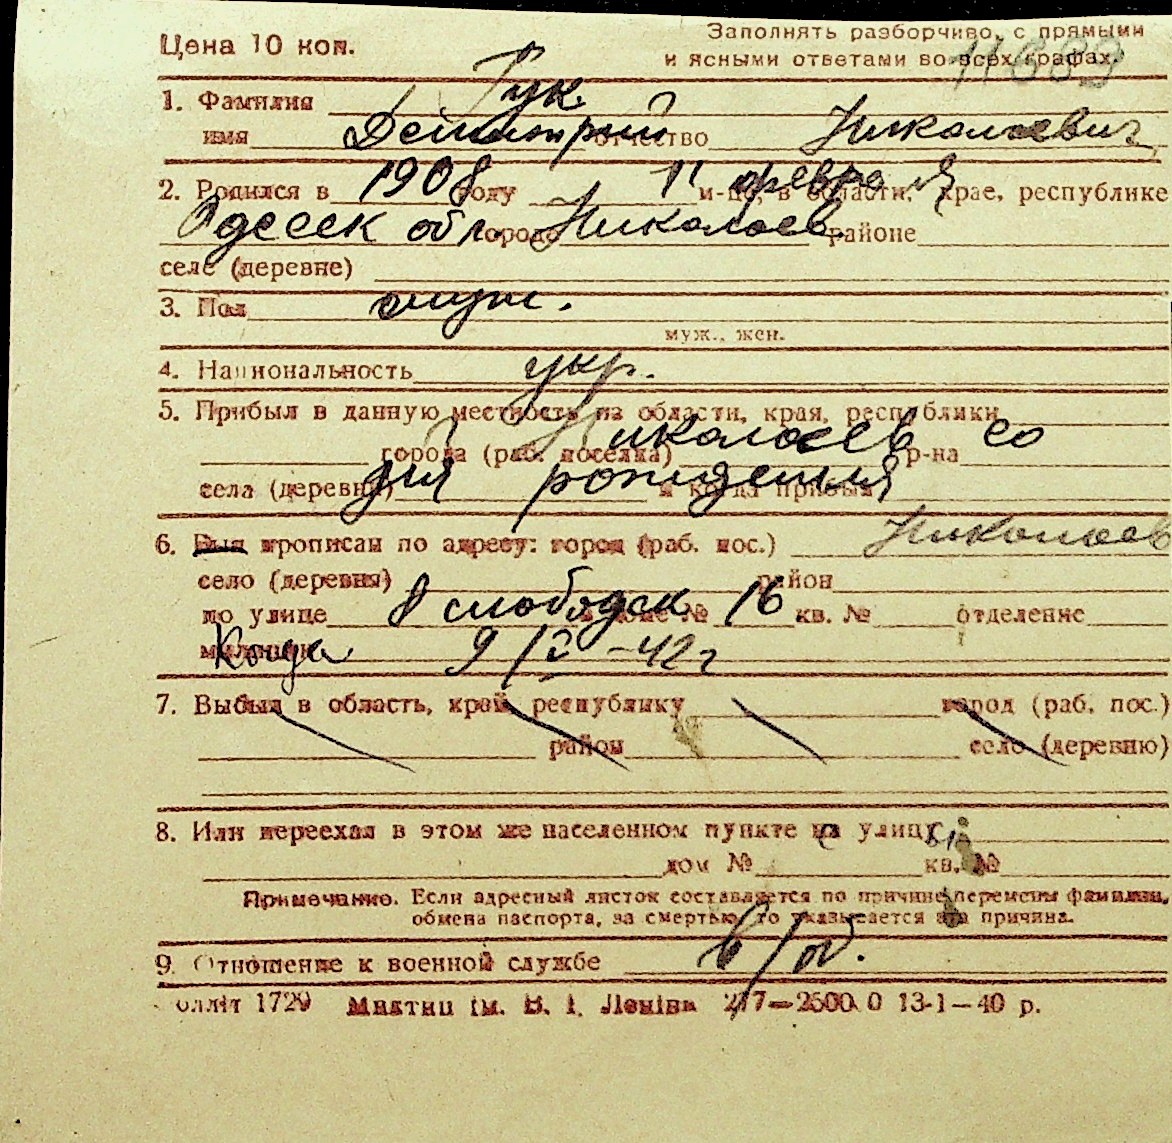 Цена 10 коп.
Заполнять разборчиво, с прямыми
и ясными ответами во всех графах.
11689
1. Фамилия Гук
имя Дмитрий отчество Николаевич
2. Родился в 1908 году 11 февраля м-це, в области, крае, республике
Одесск обл. городе Николаев районе
селе (деревне)
3. Пол муж.
муж., жен.
4. Национальность укр.
5. Прибыл в данную местность из области, края, республики
города (раб. поселка) Николаев со р-на
села (деревни) дня рождения и когда прибыл
6. Был прописан по адресу: город (раб. пос.) Николаев
село (деревня) район
по улице 8 слободск доме № 16 кв. № отделение
милиции Когда 9/V-42 г
7. Выбыл в область, край, республику город (раб. пос.)
район село (деревню)
8. Или переехал в этом же населенном пункте на улицу
дом № кв. №
Примечание. Если адресный листок составляется по причине перемены фамилии,
обмена паспорта, за смертью, то указывается эта причина.
9. Отношение к военной службе в/об.
олліт 1729 Миктип ім. В. І. Леніна 217—2500.0 13-1—40 р.